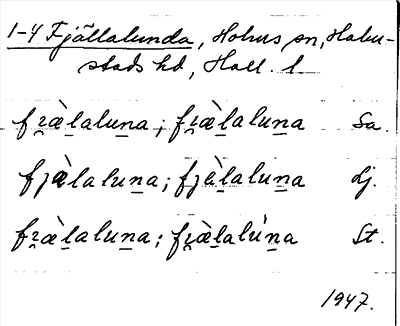 1-4 Fjällalunda, Holms sn, Halm-
stads hd, Hall. l
fɪ̯æ̀lalun̲a ; fɪ̯æ̀lalun̲a Sa.
fjæ̀lalun̲a; fjæ̀l̲alun̲a Lj.
fɪ̯æ̀l̲alun̲a; fɪ̯æ̀l̲alùn̲a St.
1947.